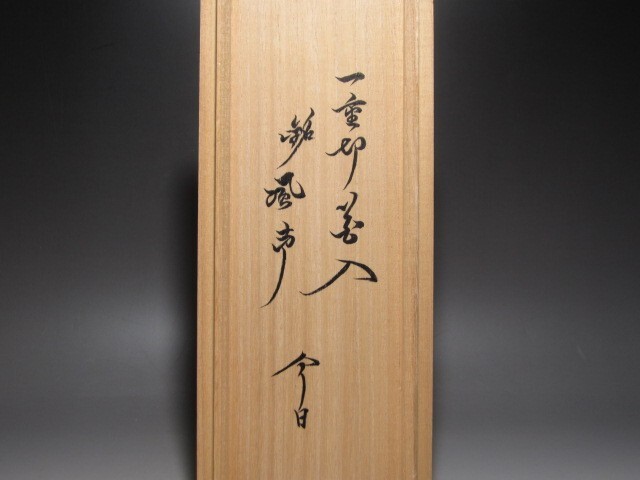 一重切花入
銘 風声
今日